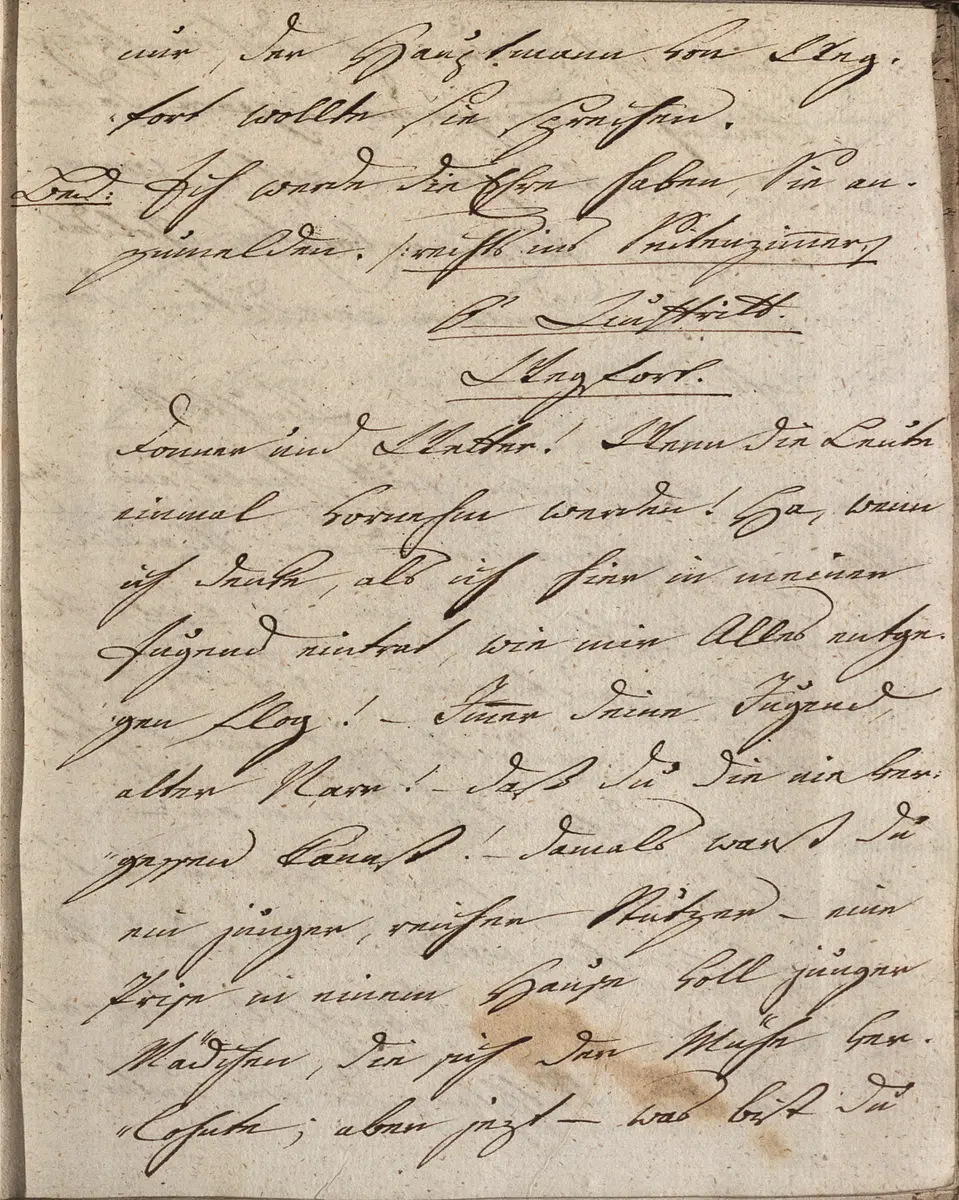 nur, der Hauptmann von Weg-
fort wollte sie sprechen.
Bed: Ich werde die Ehre haben, Sie an-
zumelden. /: rechts ins Seitenzimmer,/
6r Auftritt.
Wegfort.
Donner und Wetter! Wenn die Leute
einmal vornehm werden! Ha, wenn
ich denke, als ich hier in meiner
Jugend eintrat, wie mir Alles entge-
gen flog! – Immer deine Jugend,
alter Narr! – daß du die nie ver-
gessen kannst! – damals warst du
ein junger, reicher Stutzer – eine
Prise in einem Hause voll junger
Mädchen, die sich der Mühe ver-
lohnte; aber jezt – was bist du